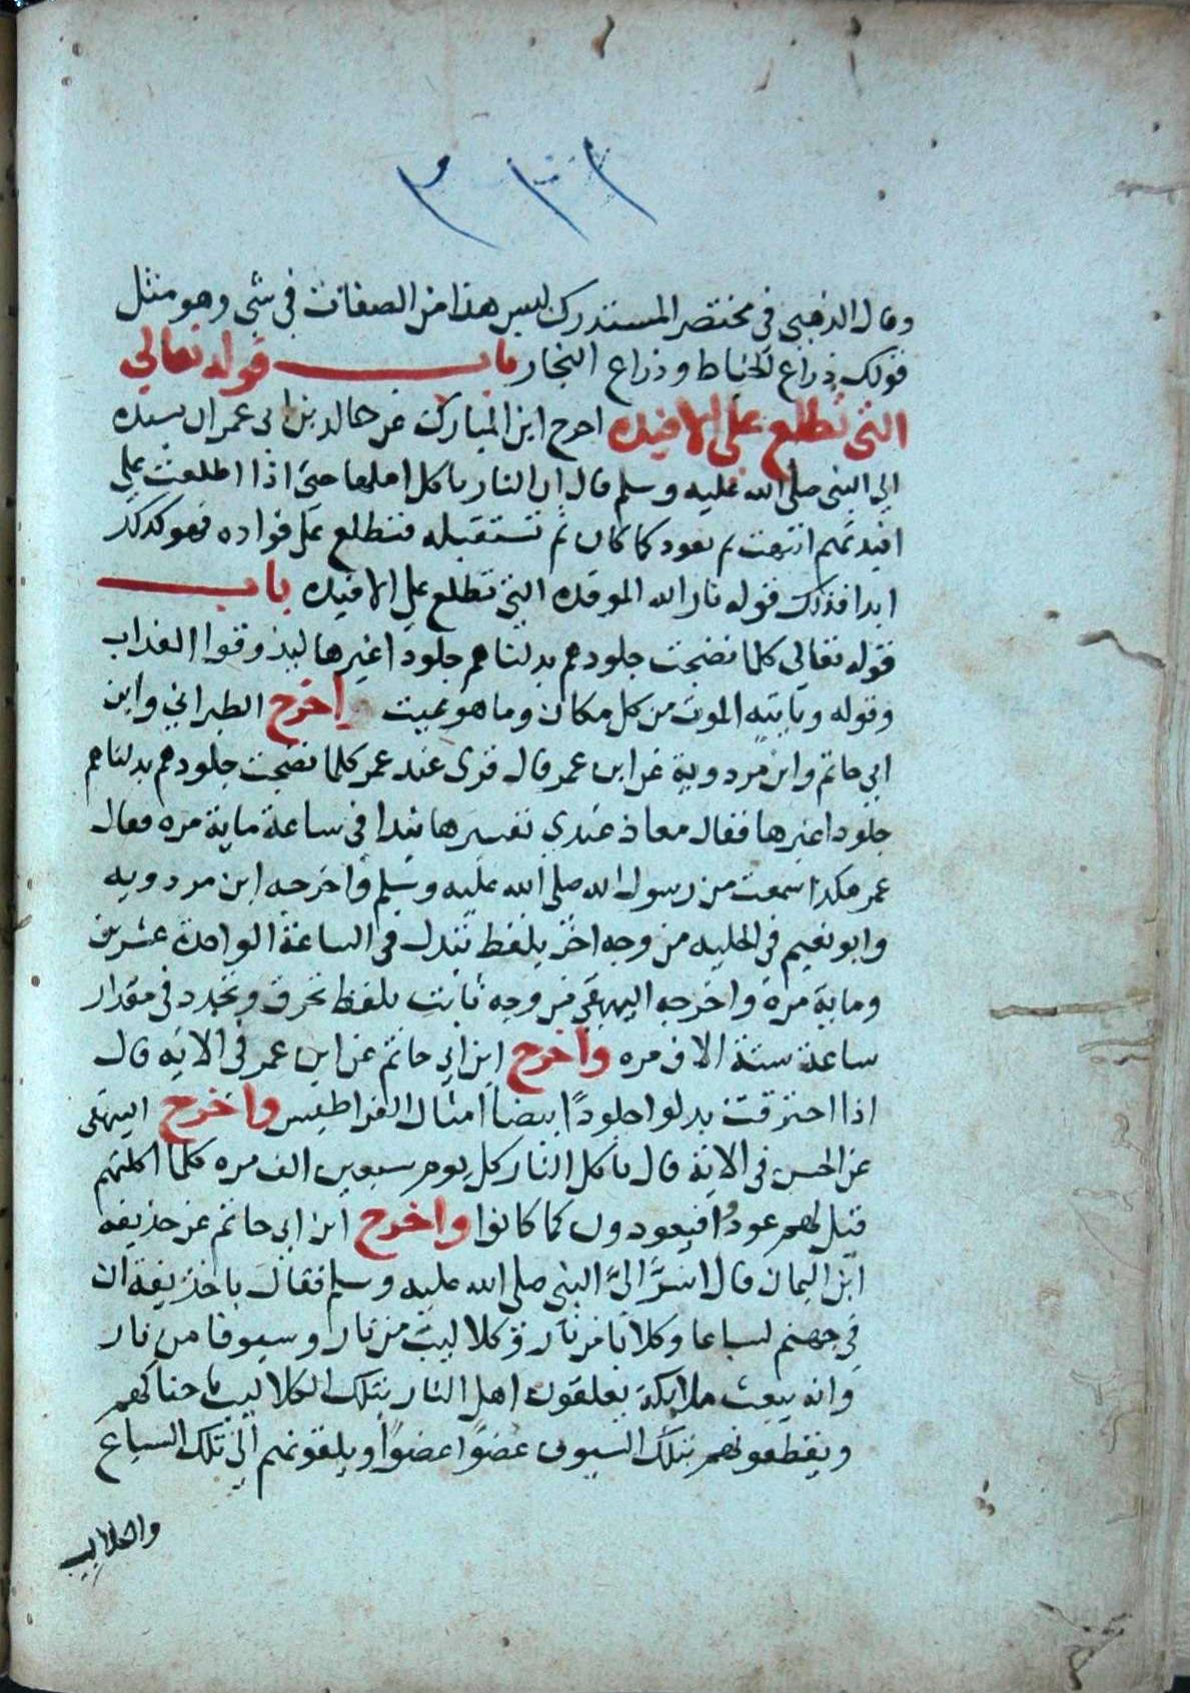 ٣١١
وقال الذهبي في مختصر المستدرك ليس هذا من الصفات في شي وهو مثل
قولك ذراع الخياط وذراع النجار باب قوله تعالى
التي تطلع على الافيده اخرج ابن المبارك عن خالد بن ابي عمران بسنده
الى النبي صلى الله عليه وسلم قال ان النار تاكل اهلها حتى اذا اطلعت على
افيدتهم انتهت ثم تعود كما كان ثم تستقبله فتطلع على فواده فهو كذلك
ابدا فذلك قوله نار الله الموقده التي تطلع على الافيده باب
قوله تعالى كلما نضجت جلودهم بدلناهم جلودا غيرها ليذوقوا العذاب
وقوله وياتيه الموت من كل مكان وما هو بميت اخرج الطبراني وابن
ابي حاتم وابن مردوية عن ابن عمر قال قرى عند عمر كلما نضجت جلودهم بدلناهم
جلودا غيرها فقال معاذ عندي تفسيرها تبدل في ساعة ماية مره فقال
عمر هكذا سمعت من رسول الله صلى الله عليه وسلم واخرجه ابن مردويه
وابو نعيم في الحليه من وجه اخر بلفظ تبدل في الساعة الواحدة عشرين
وماية مرة واخرجه البيهقي من وجه ثابت بلفظ تحرق وتجدد في مقدار
ساعة ستة الاف مره واخرج ابن ابي حاتم عن ابن عمر في الايه قال
اذا احترقت بدلوا جلودًا بيضا امثال القراطيس واخرج البيهقي
عن الحسن في الاية قال تاكل النار كل يوم سبعين الف مره كلما اكلتهم
قيل لهم عودوا فيعودون كما كانوا واخرج ابن ابي حاتم عن حذيفه
ابن اليمان قال اسرَّ اليَّ النبي صلى الله عليه وسلم فقال يا حذيفة ان
في جهنم لسباعا وكلابا من نار وكلاليب من نار وسيوفا من نار
وانه يبعث ملايكة يعلقون اهل النار بتلك الكلاليب باحناكهم
ويقطعونهم بتلك السيوف عضوًا عضوًا ويلقونهم الى تلك السباع
والكلاليب